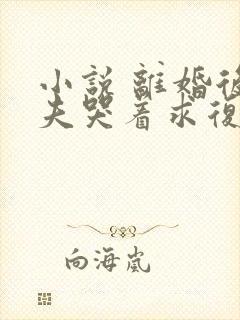 小説 離婚後
夫哭着求復
向海嵐